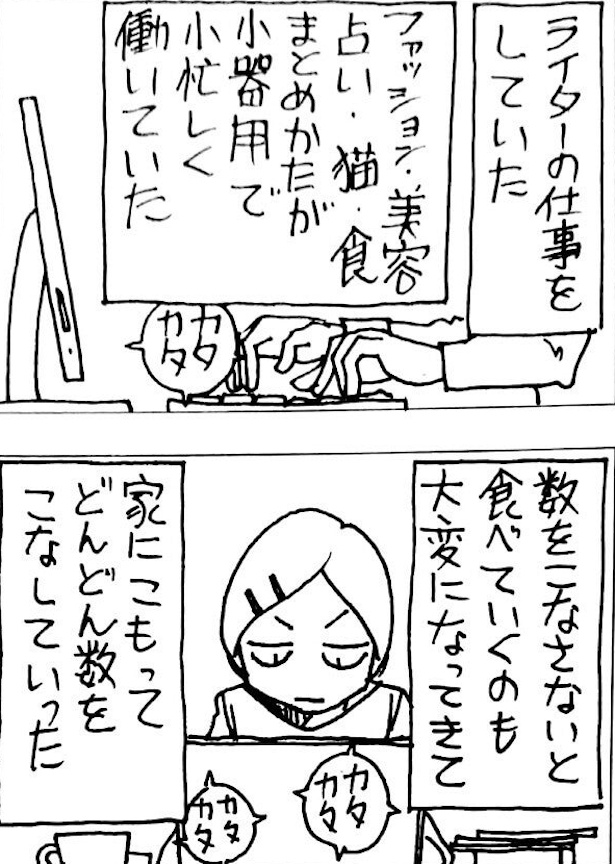 ライターの仕事を
していた
ファッション・美容
占い・猫・食
まとめかたが
小器用で
小忙しく
働いていた
カタ
カタ
数をこなさないと
食べていくのも
大変になってきて
家にこもって
どんどん数を
こなしていった
カタ
カタ
カタ
カタ